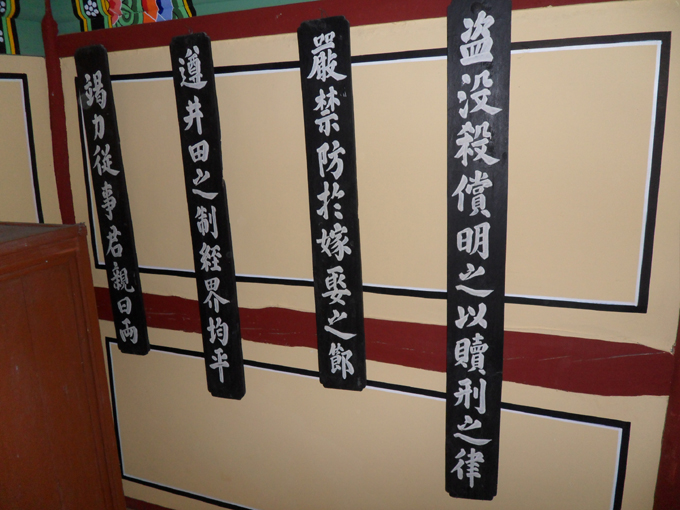 盗没殺償明之以贖刑之律
嚴禁防於嫁娶之節
遵井田之制経界均平
竭力従事若親曰両